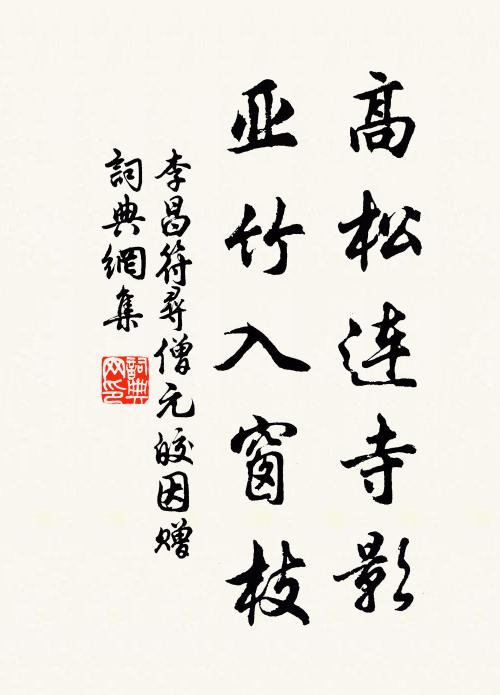 高松连寺影
亚竹入窗枝
李昌符尋僧元皎因赠
詞典網集
詞典網印